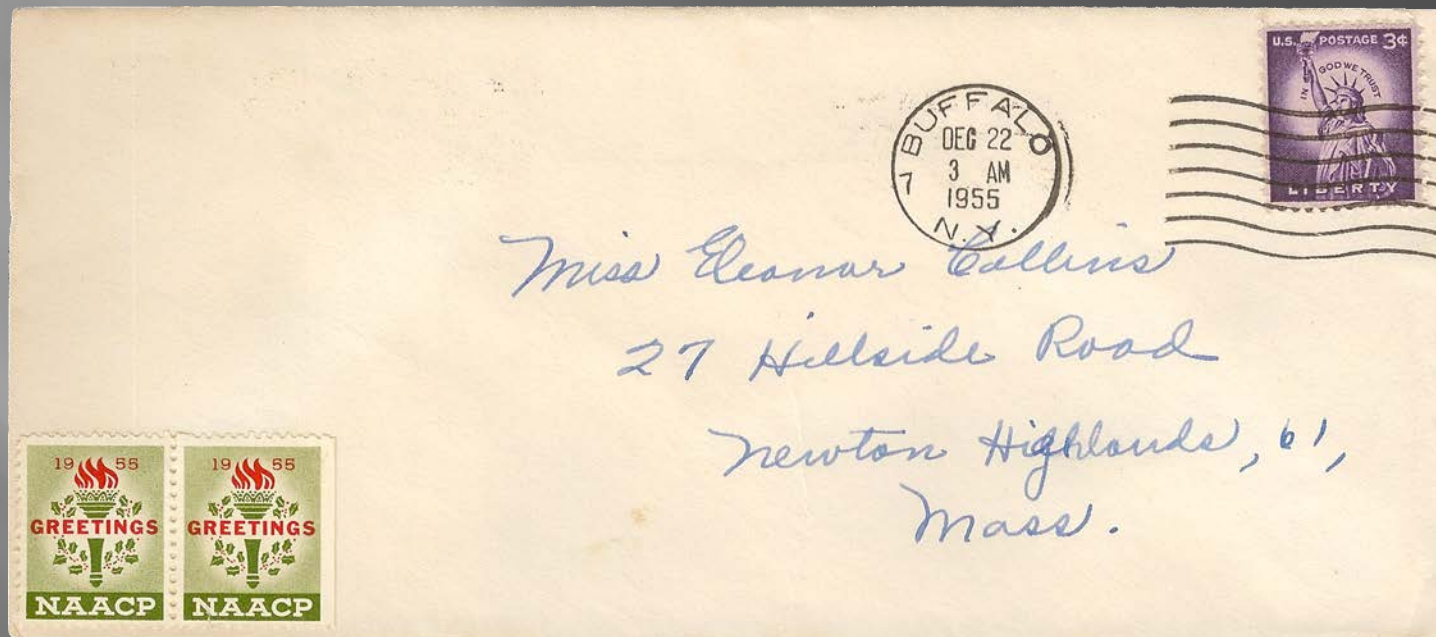 U.S. POSTAGE 3¢
IN GOD WE TRUST
LIBERTY
BUFFALO
DEC 22
3 AM
1955
N.Y.
7
Miss Eleanor Collins
27 Hillside Road
Newton Highlands, 61,
Mass.
1955
GREETINGS
NAACP
1955
GREETINGS
NAACP